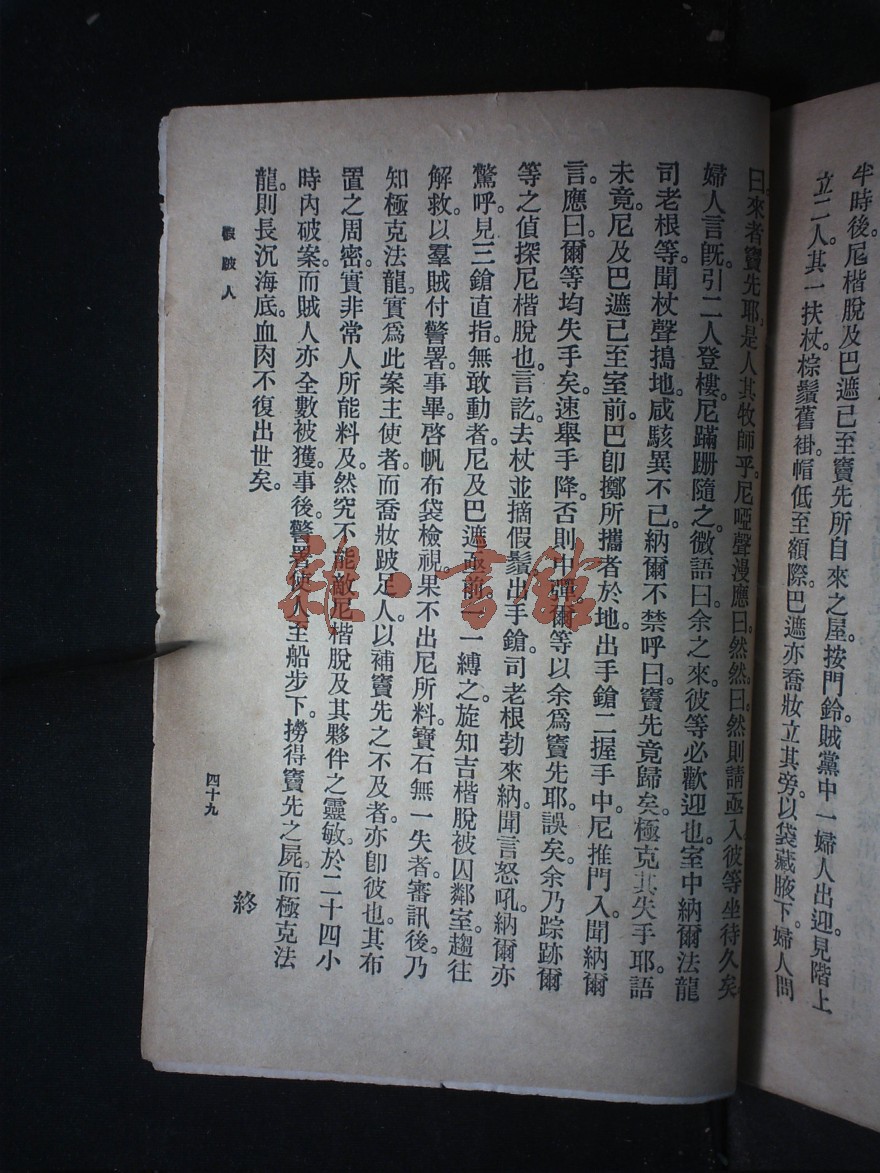 半時後。尼楷脫及巴遮已至竇先所自來之屋。按門鈴。賊黨中一婦人出迎。見階上
立二人。其一扶杖。棕鬚舊褂。帽低至額際。巴遮亦喬妝立其旁。以袋藏腋下。婦人問
曰。來者竇先耶。是人其牧師乎。尼啞聲漫應曰。然然。曰。然則請亟入。彼等坐待久矣。
婦人言既。引二人登樓。尼蹣跚隨之。微語曰。余之來。彼等必歡迎也。室中納爾法龍
司老根等聞杖聲搗地。咸駭異不已。納爾不禁呼曰。竇先竟歸矣。極克其失手耶。語
未竟。尼及巴遮已至室前。巴卽擲所攜者於地。出手鎗二握手中。尼推門入。聞納爾
言。應曰。爾等均失手矣。速舉手降。否則中彈。爾等以余爲竇先耶。誤矣。余乃踪跡爾
等之偵探尼楷脫也。言訖。去杖並摘假鬚。出手鎗。司老根勃來納。聞言怒吼。納爾亦
驚呼。見三鎗直指。無敢動者。尼及巴遮亟前。一一縛之。旋知吉楷脫被囚鄰室。趨往
解救。以羣賊付警署。事畢。啓帆布袋檢視。果不出尼所料。寶石無一失者。審訊後。乃
知極克法龍。實爲此案主使者。而喬妝跛足人。以補竇先之不及者。亦卽彼也。其布
置之周密。實非常人所能料及。然究不能敵尼楷脫及其夥伴之靈敏。於二十四小
時內破案。而賊人亦全數被獲。事後。警署使人至船步下。撈得竇先之屍。而極克法
龍。則長沉海底。血肉不復出世矣。
終
跛人
四十九